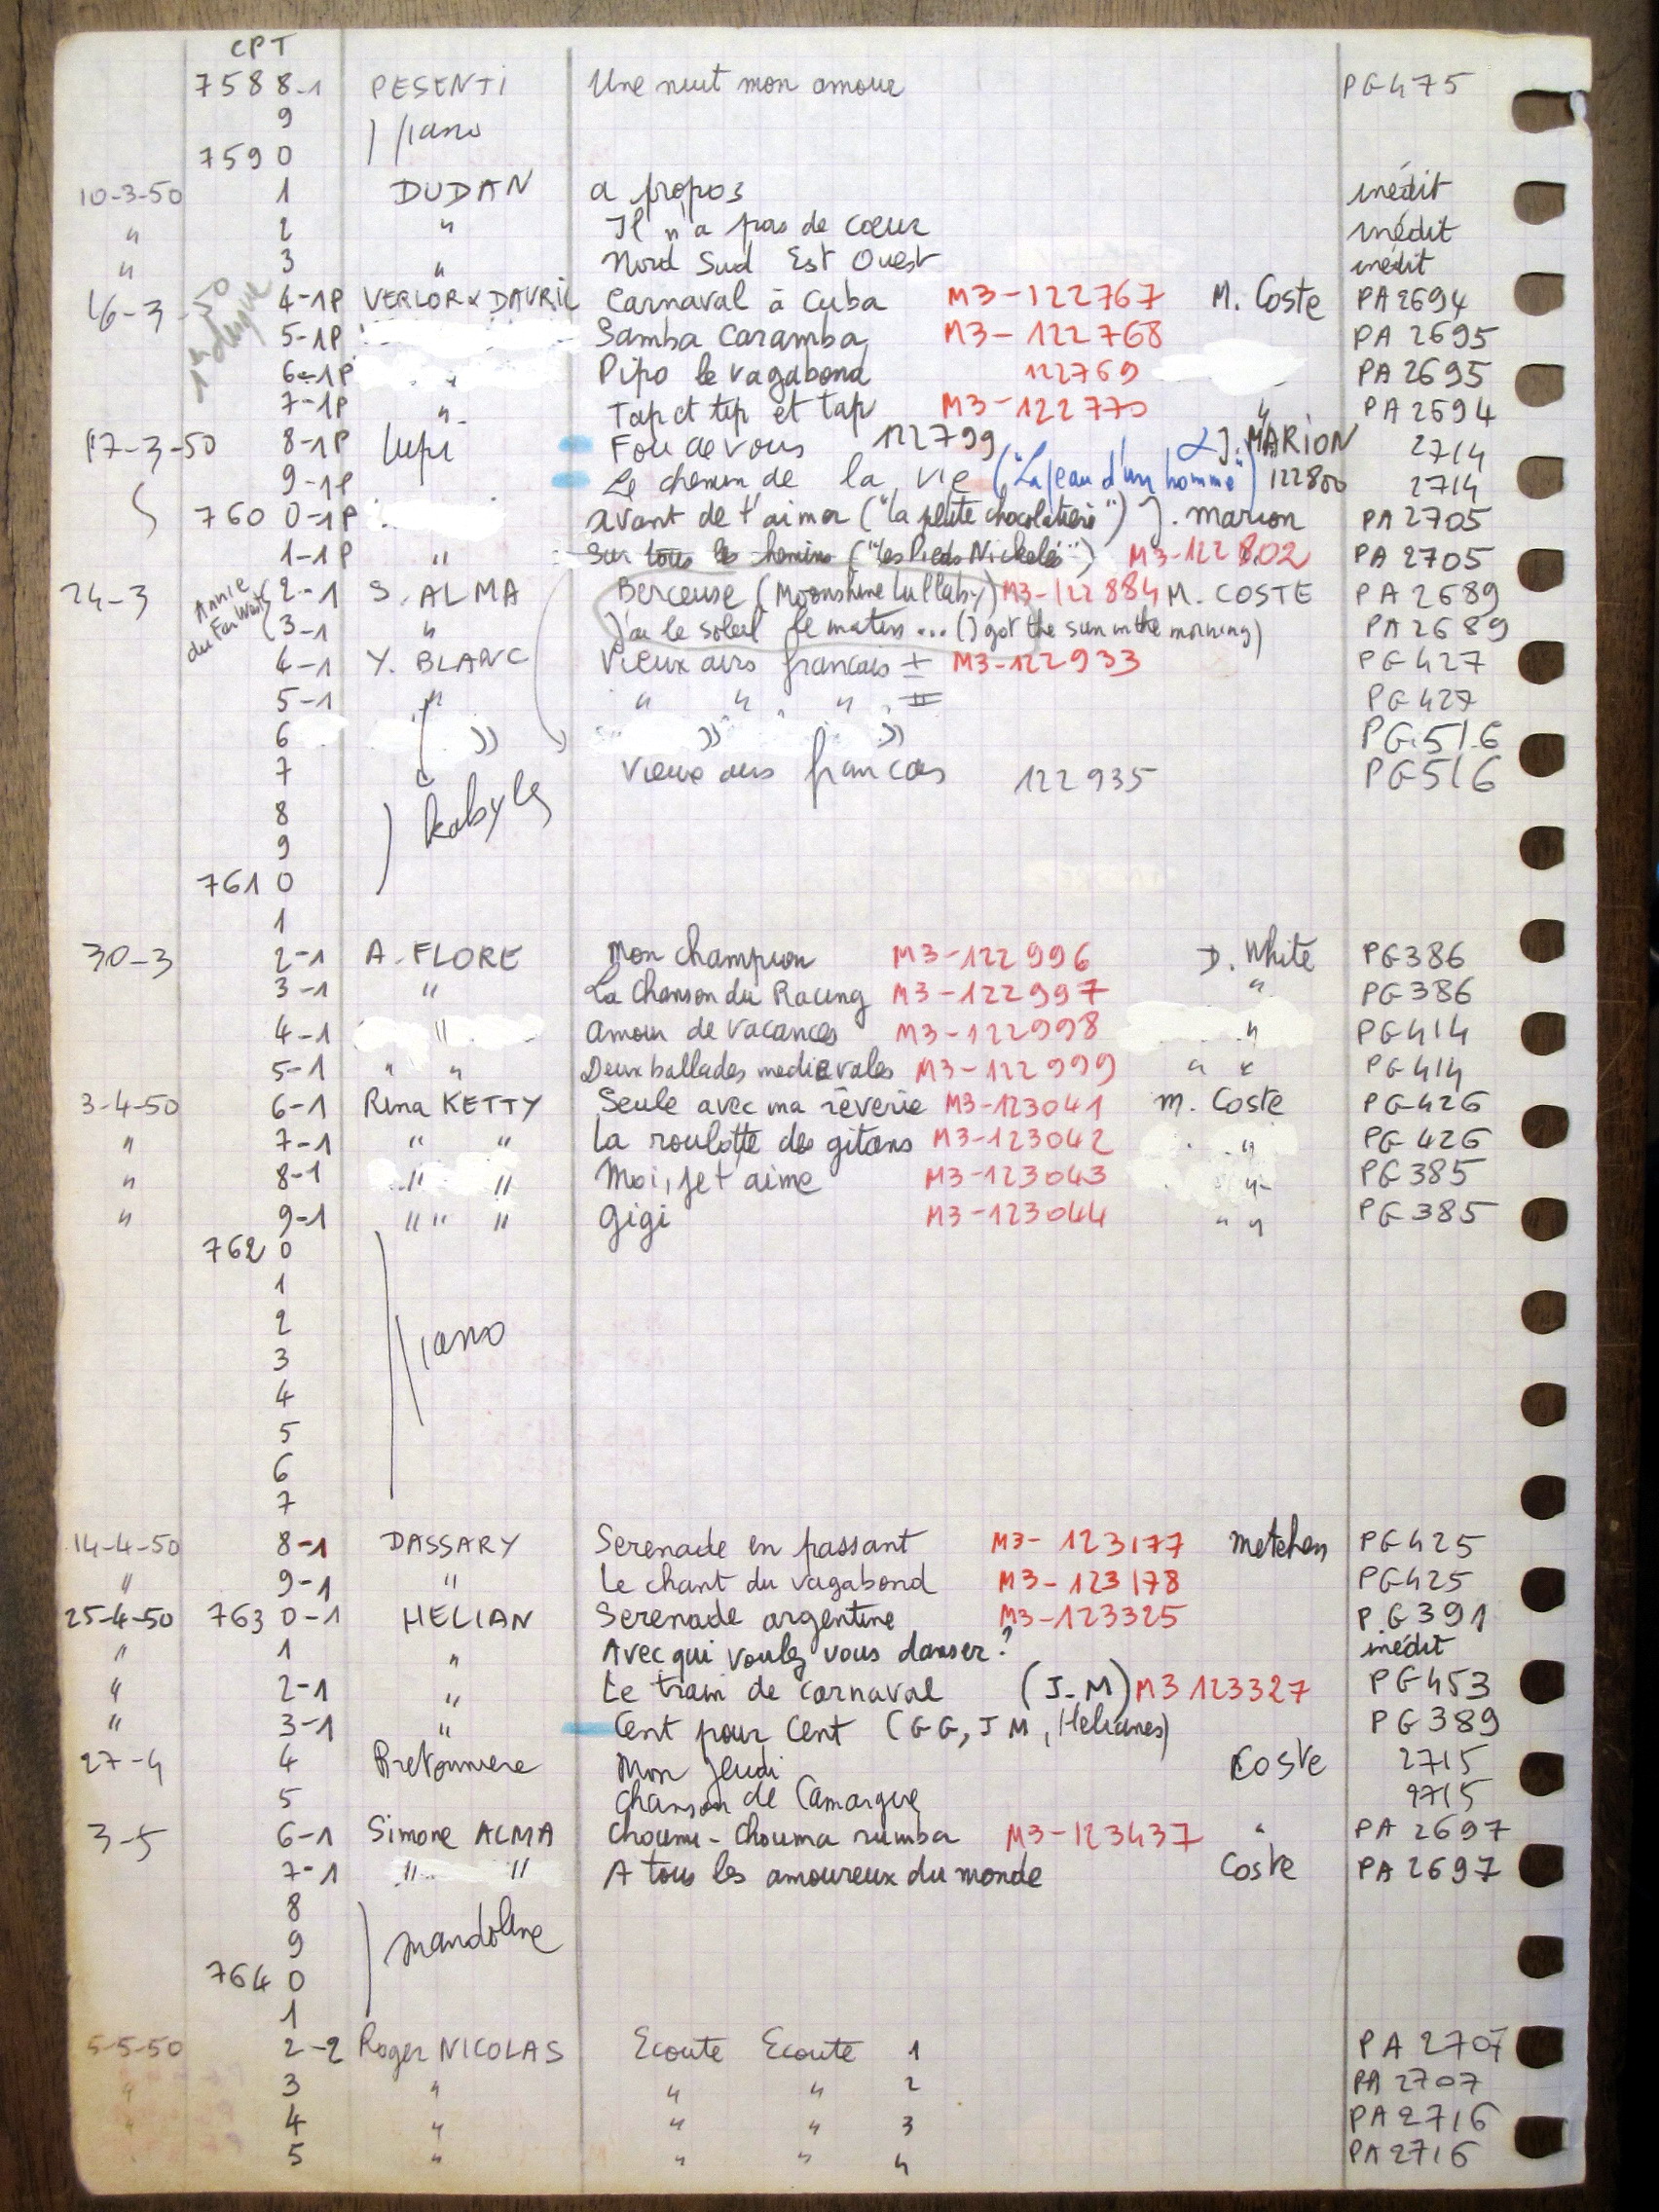 CPT
7588-1 PESENTI Une nuit mon amour PG475
9 piano
7590
10-3-50 1 DUDAN a propos inédit
" 2 " Il n'a pas de coeur inédit
" 3 " Nord Sud Est Ouest inédit
16-3-50 4-1P VERLOR & DAVRIL Carnaval à Cuba M3-122767 M. Coste PA 2694
5-1P Samba Caramba M3-122768 PA 2695
6-1P " Pipo le vagabond 122769 PA 2695
7-1P " Tap et tip et tap M3-122770 " PA 2694
17-3-50 8-1P Lupi Fou de vous 122799 & J. MARION 2714
9-1P Le chemin de la vie ("La peau d'un homme") 122800 2714
760 0-1P avant de t'aimer ("la petite chocolatière") J. marion PA 2705
1-1P " Sur tous les chemins ("Les Pieds Nickelés") M3-122802 PA 2705
24-3 Annie du Far West 2-1 S. ALMA Berceuse (Moonshine Lullaby) M3-122884 M. COSTE PA 2689
3-1 " J'ai le soleil le matin ... (I got the sun in the morning) PA 2689
4-1 Y. BLANC Vieux airs francais I M3-122933 PG 427
5-1 " " " " II PG 427
6 " " " PG 516
7 Vieux airs francais 122935 PG 516
8 kabyles
9
761 0
1
30-3 2-1 A. FLORE Mon champion M3-122996 D. White PG386
3-1 " La Chanson du Racing M3-122997 " PG 386
4-1 " amour de vacances M3-122998 " PG414
5-1 " " Deux ballades medievales M3-122999 " " PG414
3-4-50 6-1 Rina KETTY Seule avec ma rêverie M3-123041 M. Coste PG426
" 7-1 " " La roulotte des gitans M3-123042 " PG 426
" 8-1 " " Moi, je t'aime M3-123043 " PG385
" 9-1 " " " Gigi M3-123044 " " PG 385
762 0
1
2 piano
3
4
5
6
7
14-4-50 8-1 DASSARY Serenade en passant M3-123177 Metehen PG425
" 9-1 " Le chant du vagabond M3-123178 PG425
25-4-50 763 0-1 HELIAN Serenade argentine M3-123325 PG 391
" 1 " Avec qui voulez vous danser? inédit
" 2-1 " Le train de carnaval (J-M) M3 123327 PG453
" 3-1 " Cent pour Cent (GG, JM, Helianes) PG 389
27-4 4 Bretonniere Mon Jeudi Coste 2715
5 Chanson de Camargue 2715
3-5 6-1 Simone ALMA Choumi-Chouma rumba M3-123437 " PA 2697
7-1 " " A tous les amoureux du monde Coste PA 2697
8
9 mandoline
764 0
1
5-5-50 2-2 Roger NICOLAS Ecoute Ecoute 1 PA 2707
" 3 " " " 2 PA 2707
" 4 " " " 3 PA 2716
5 " " " 4 PA 2716